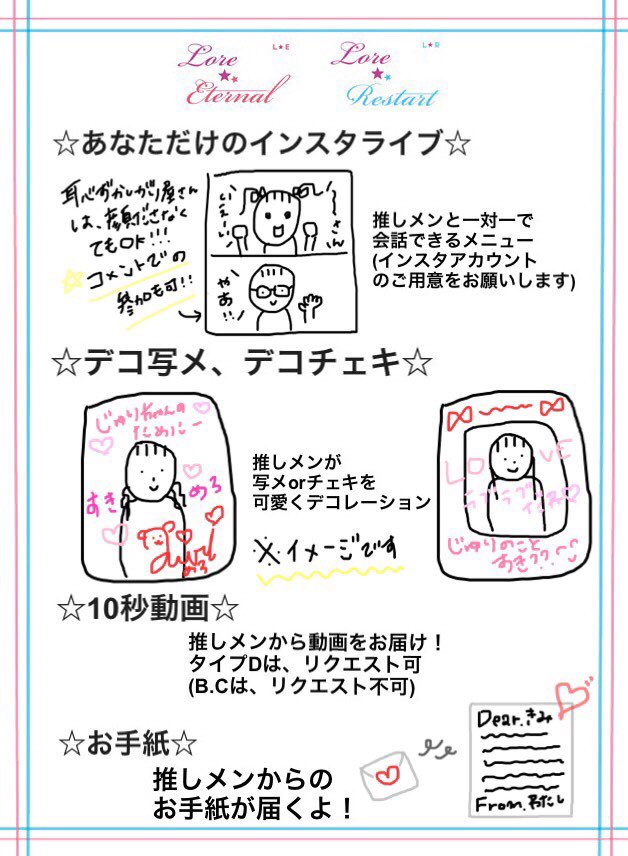 Lore
Eternal
L★E
Lore
Restart
L★R
☆あなただけのインスタライブ☆
恥ずかしがり屋さん
は、顔ださなく
てもOK!!!
コメントでの
参加も可!!
いえーい
さん
やあ!!
推しメンと一対一で
会話できるメニュー
(インスタアカウント
のご用意をお願いします)
☆デコ写メ、デコチェキ☆
じゅりちゃんの
ために
すき
めろ
推しメンが
写メorチェキを
可愛くデコレーション
※イメージです
LOVE
ラブラブ
じゅりのこと
すき??
☆10秒動画☆
推しメンから動画をお届け!
タイプDは、リクエスト可
(B.Cは、リクエスト不可)
☆お手紙☆
推しメンからの
お手紙が届くよ!
Dear.きみ
From.わたし